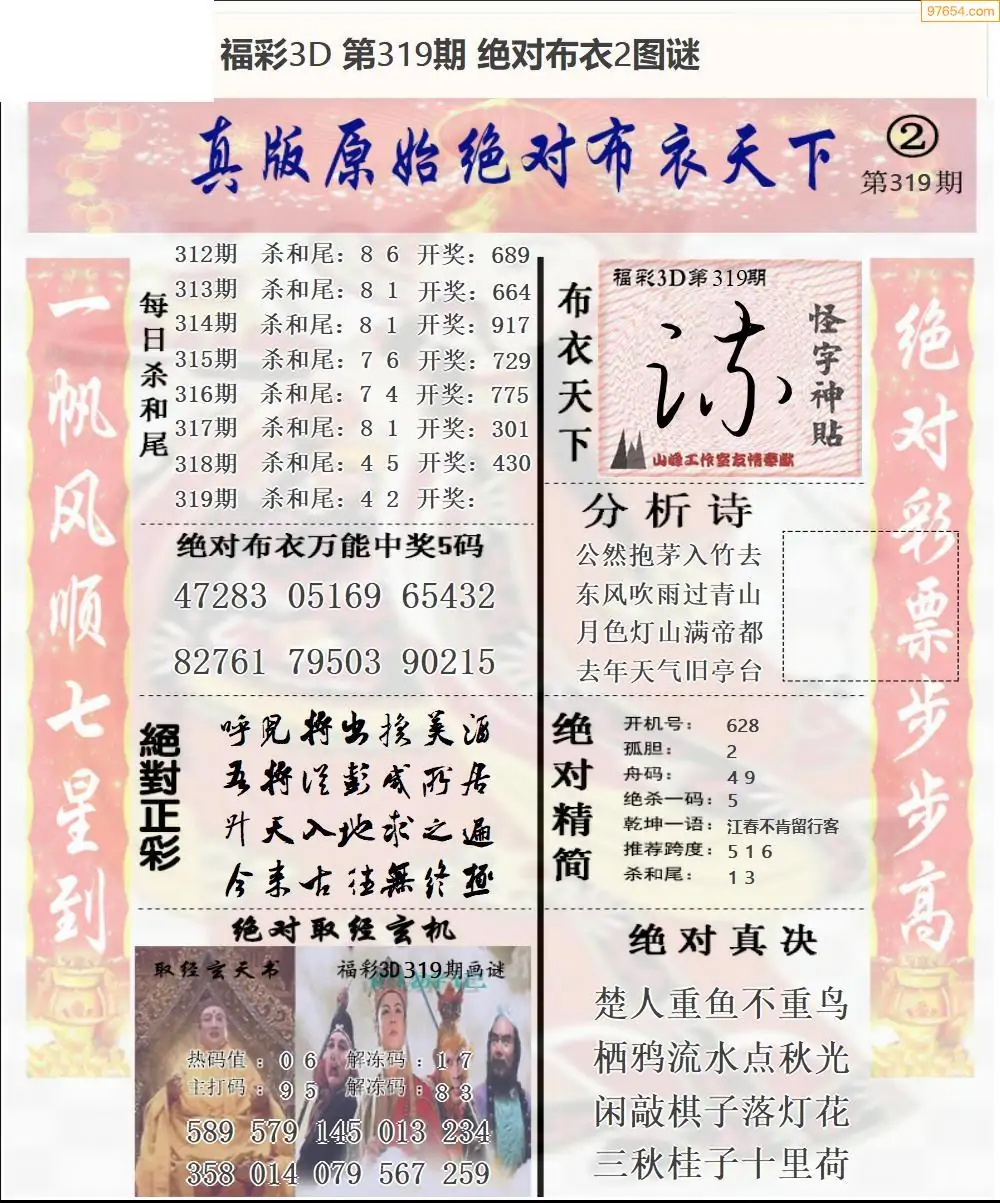 97654.com
福彩3D 第319期 绝对布衣2图谜
真版原始绝对布衣天下
②
第319期
一帆风顺七星到
每日杀和尾
312期 杀和尾：8 6 开奖：689
313期 杀和尾：8 1 开奖：664
314期 杀和尾：8 1 开奖：917
315期 杀和尾：7 6 开奖：729
316期 杀和尾：7 4 开奖：775
317期 杀和尾：8 1 开奖：301
318期 杀和尾：4 5 开奖：430
319期 杀和尾：4 2 开奖：
绝对布衣万能中奖5码
47283 05169 65432
82761 79503 90215
絕對正彩
呼儿将出换美酒
吾将从彭咸所居
升天入地求之遍
今来古往無终极
绝对取经玄机
取经玄天书
福彩3D319期画谜
热码值：0 6 解冻码：1 7
主打码：9 5 解冻码：8 3
589 579 145 013 234
358 014 079 567 259
布衣天下
福彩3D第319期
怪字神貼
山峰工作室友情奉献
分析诗
公然抱茅入竹去
东风吹雨过青山
月色灯山满帝都
去年天气旧亭台
绝对精简
开机号：628
孤胆：2
舟码：4 9
绝杀一码：5
乾坤一语：江春不肯留行客
推荐跨度：5 1 6
杀和尾：1 3
绝对真决
楚人重鱼不重鸟
栖鸦流水点秋光
闲敲棋子落灯花
三秋桂子十里荷
绝对彩票步步高